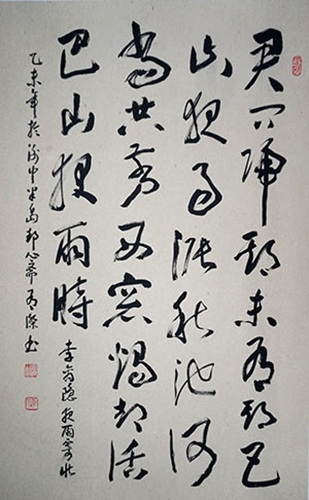 君問歸期未有期巴
山夜雨漲秋池何
當共剪西窗燭却話
巴山夜雨時 李商隱夜雨寄北
乙未年於渝中半島心齋書